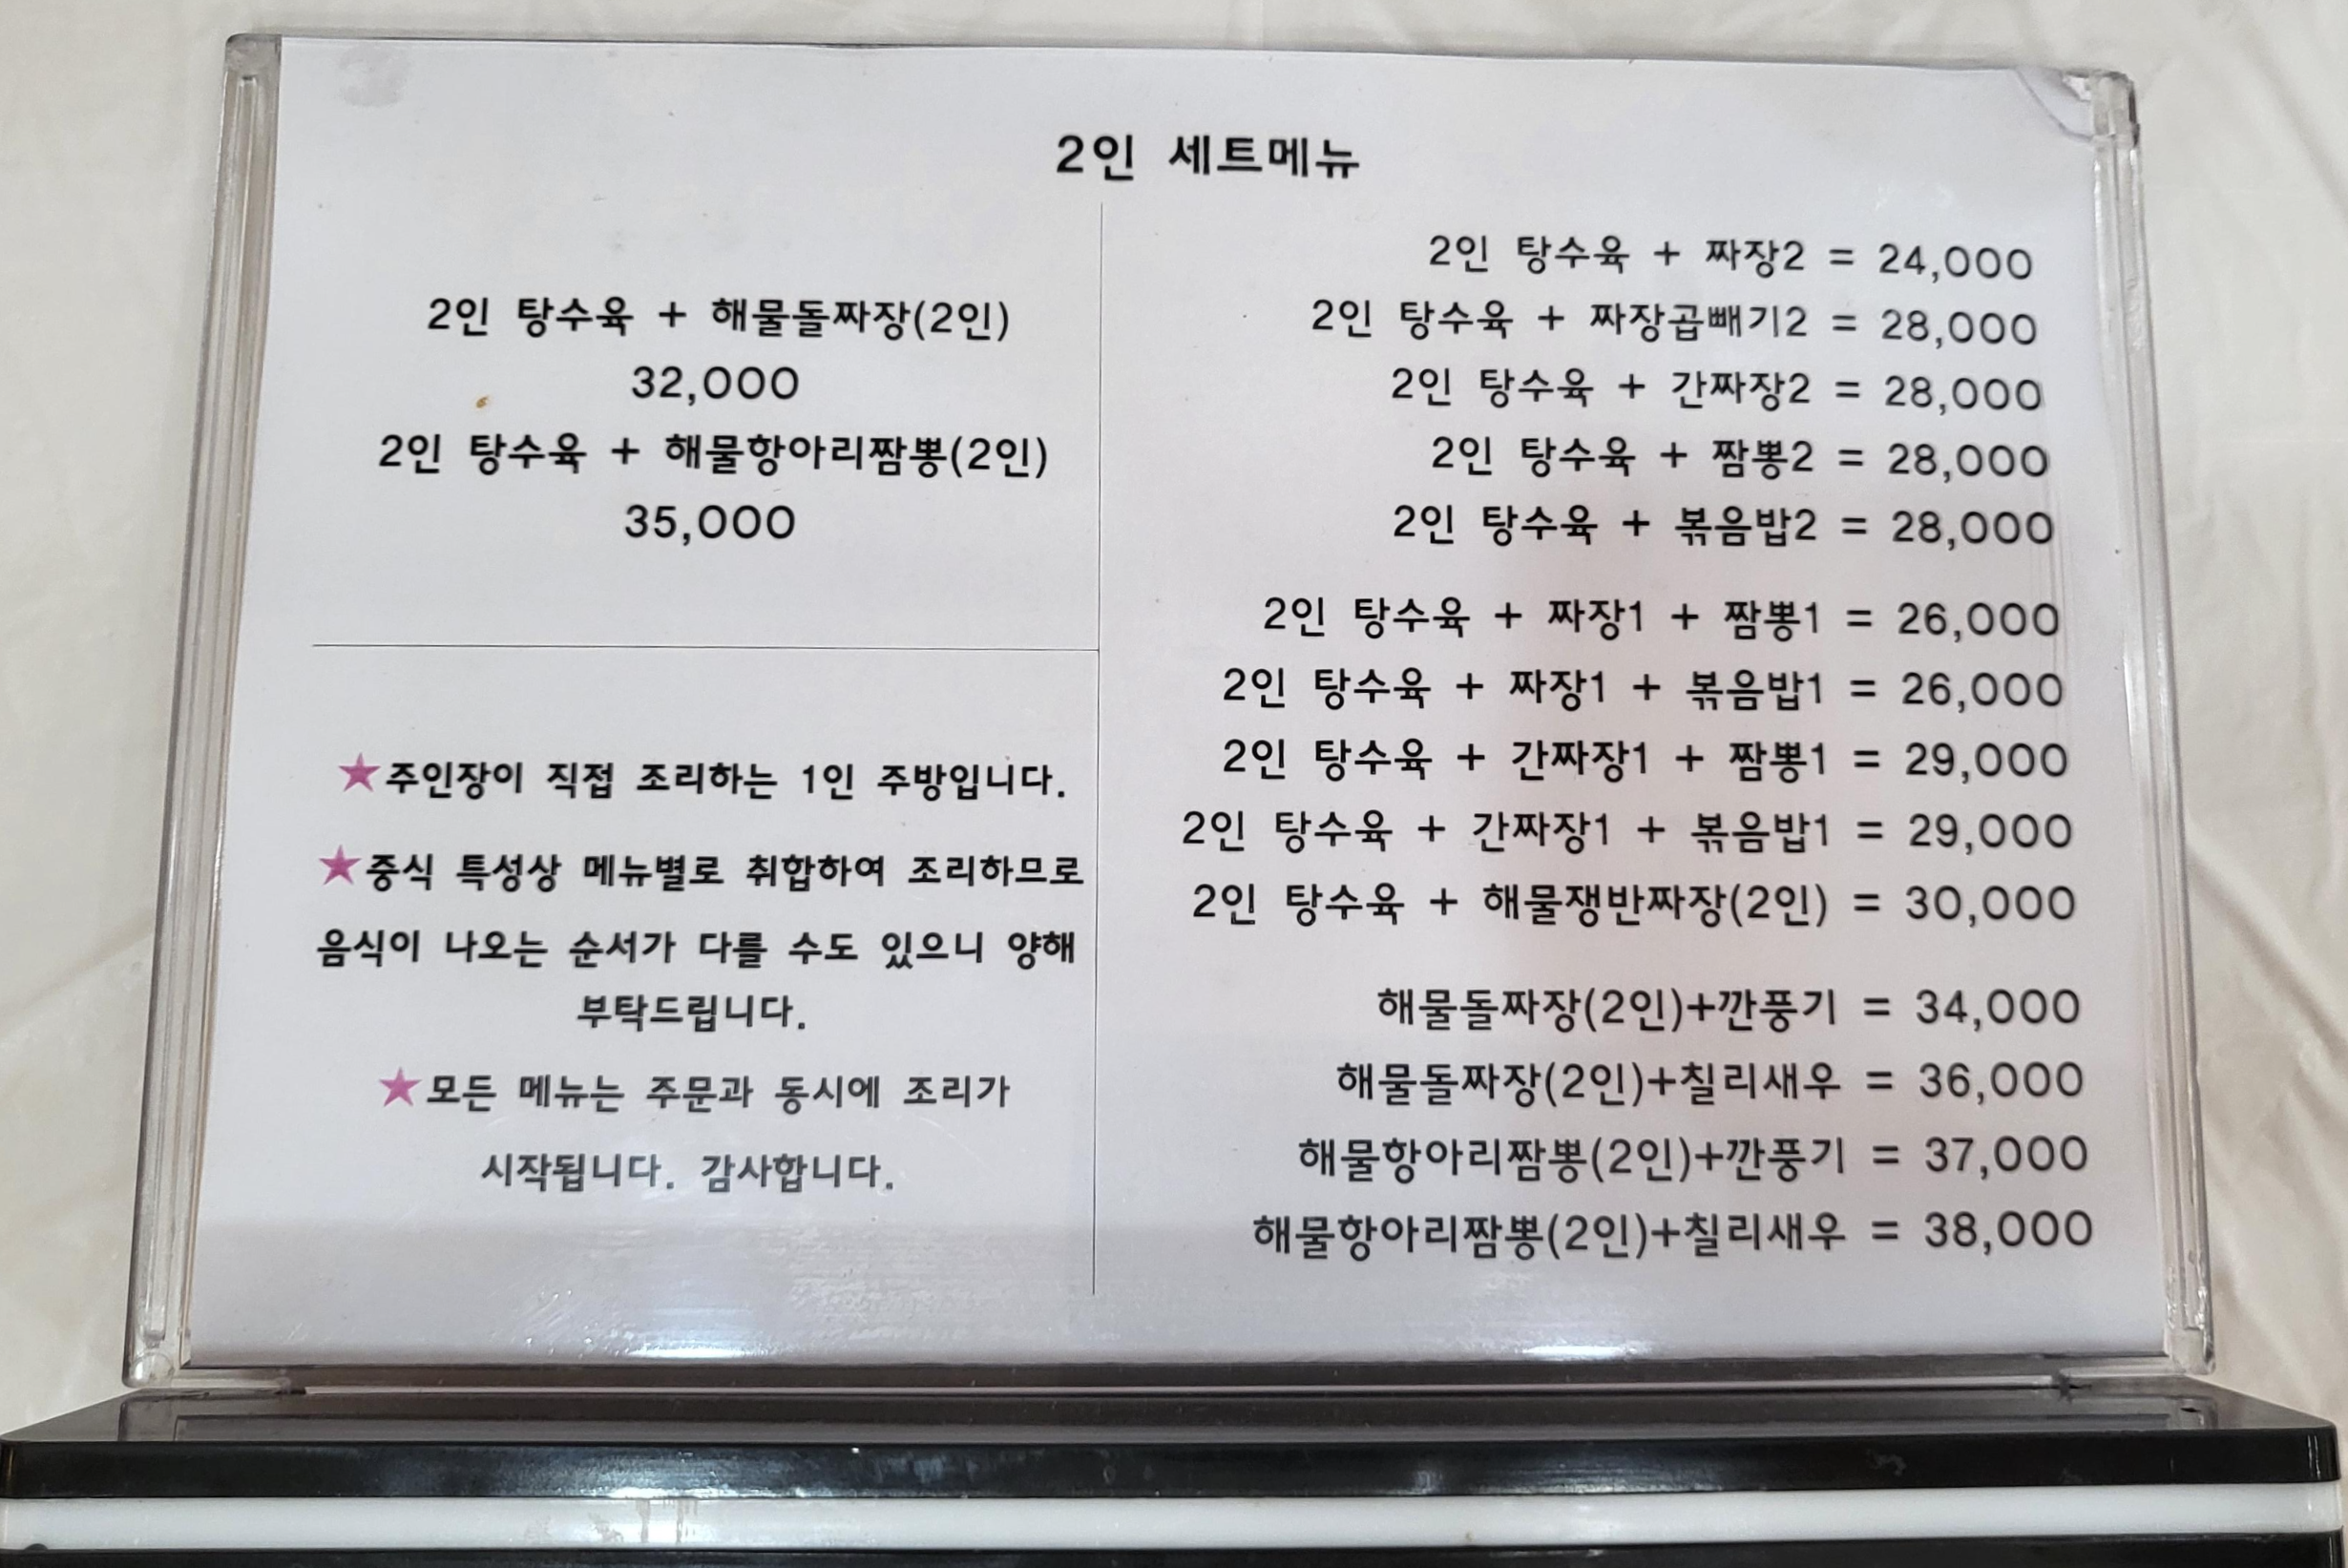 2인 세트메뉴
2인 탕수육 + 해물돌짜장(2인)
32,000
2인 탕수육 + 해물항아리짬뽕(2인)
35,000
★주인장이 직접 조리하는 1인 주방입니다.
★중식 특성상 메뉴별로 취합하여 조리하므로
음식이 나오는 순서가 다를 수도 있으니 양해
부탁드립니다.
★모든 메뉴는 주문과 동시에 조리가
시작됩니다. 감사합니다.
2인 탕수육 + 짜장2 = 24,000
2인 탕수육 + 짜장곱빼기2 = 28,000
2인 탕수육 + 간짜장2 = 28,000
2인 탕수육 + 짬뽕2 = 28,000
2인 탕수육 + 볶음밥2 = 28,000
2인 탕수육 + 짜장1 + 짬뽕1 = 26,000
2인 탕수육 + 짜장1 + 볶음밥1 = 26,000
2인 탕수육 + 간짜장1 + 짬뽕1 = 29,000
2인 탕수육 + 간짜장1 + 볶음밥1 = 29,000
2인 탕수육 + 해물쟁반짜장(2인) = 30,000
해물돌짜장(2인)+깐풍기 = 34,000
해물돌짜장(2인)+칠리새우 = 36,000
해물항아리짬뽕(2인)+깐풍기 = 37,000
해물항아리짬뽕(2인)+칠리새우 = 38,000